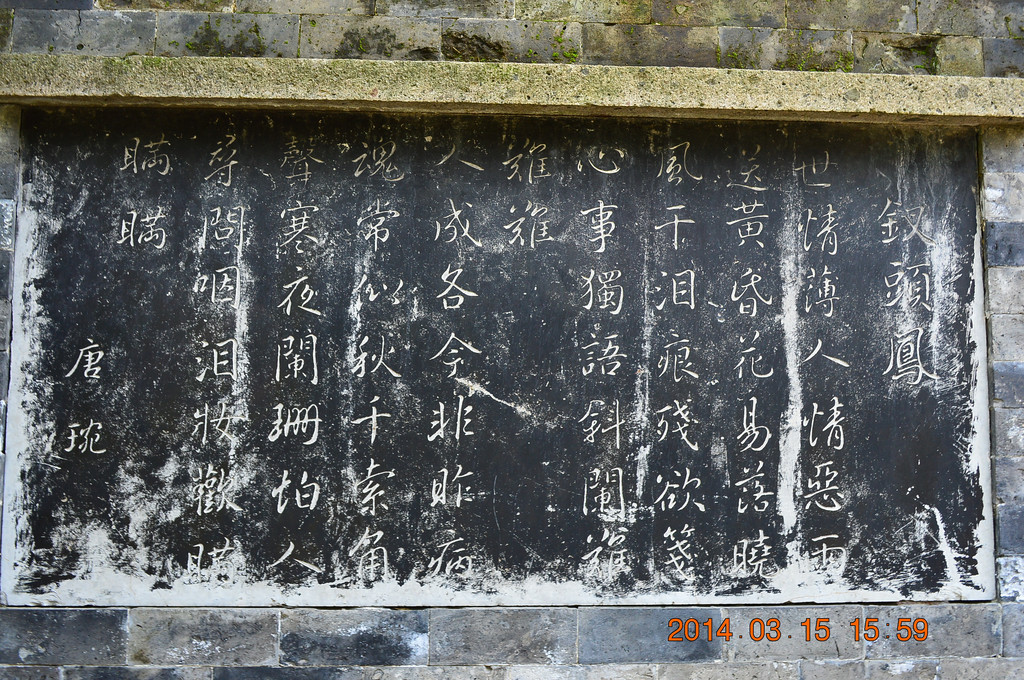 釵頭鳳
世情薄人情惡雨
送黃昏花易落曉
風干泪痕殘欲箋
心事獨語斜闌難
難難
人成各今非昨病
魂常似秋千索角
聲寒夜闌珊怕人
尋問咽泪妝歡瞞
瞞瞞
唐琬
2014.03.15 15:59